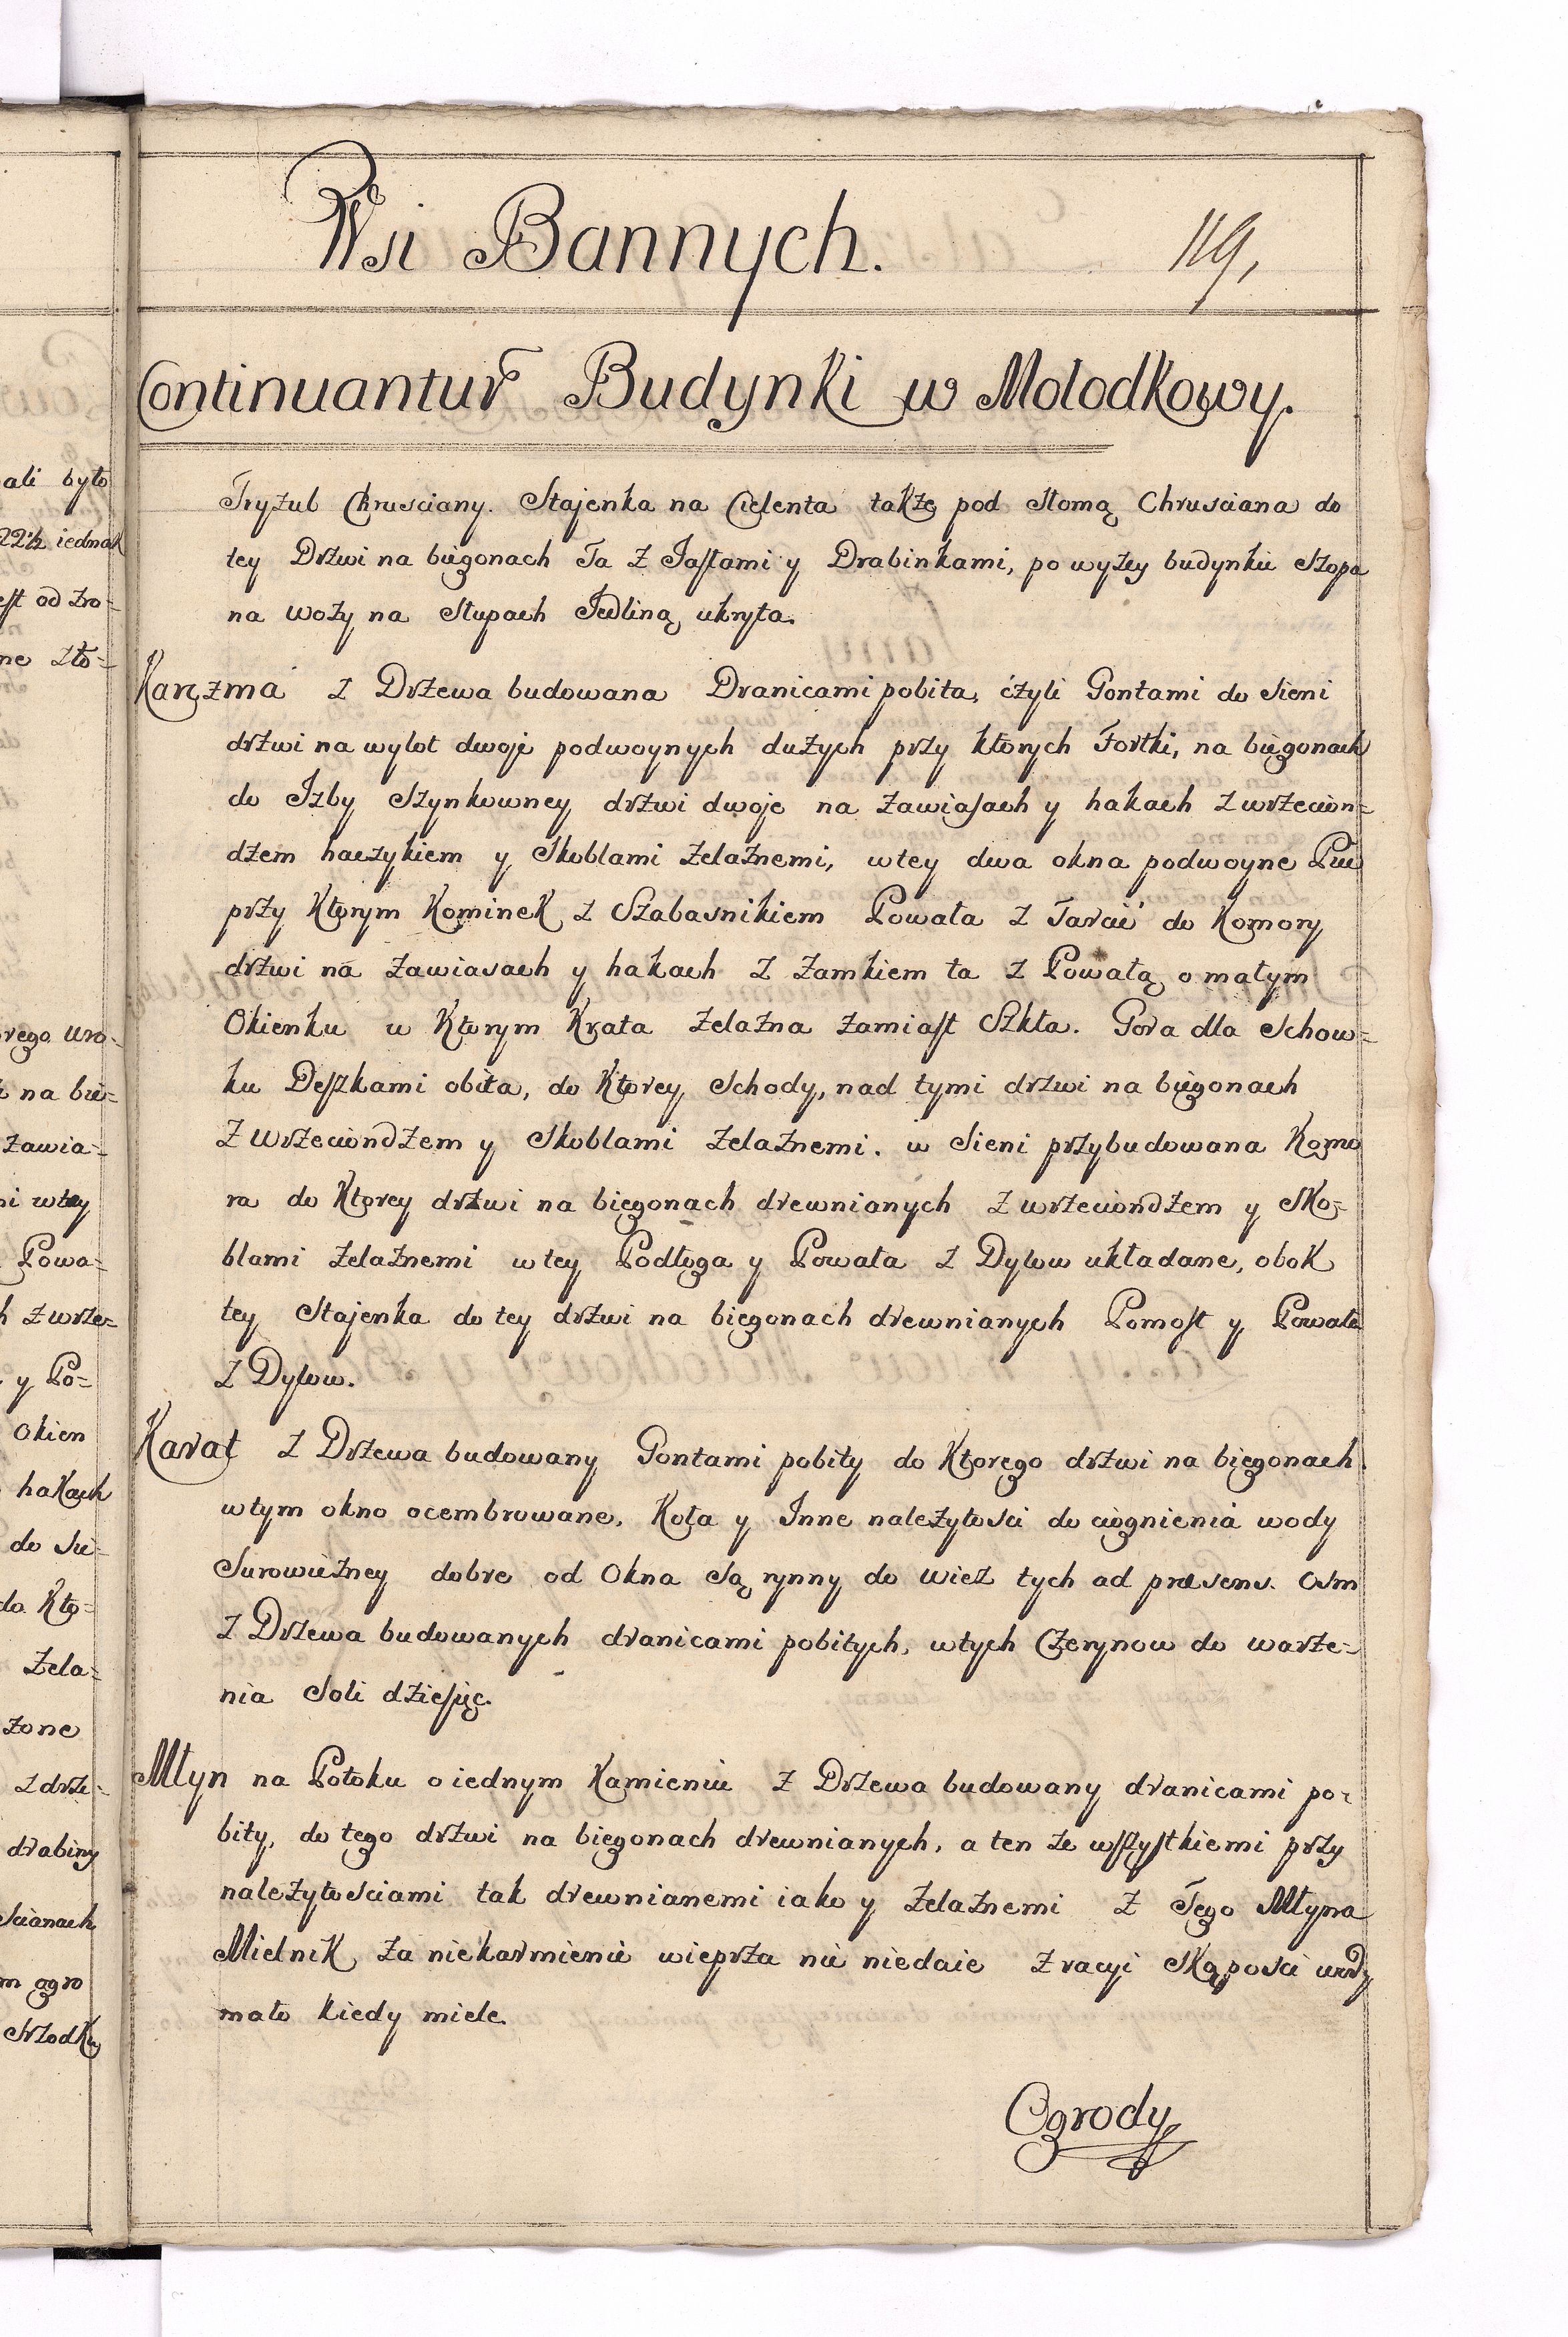 Wsi Bannych. 119,
Continuantur Budynki w Mołodkowy.
Tryzub Chrusciany. Stajenka na Cielenta takze pod Słomą Chrusciana do
tey Drzwi na biegonach Ta z Jasłami y Drabinkami, powyzey budynku Szopa
na wozy na Słupach Jedliną ukryta.
Karczma z Drzewa budowana Dranicami pobita, czyli Gontami do Sieni
drzwi na wylot dwoje podwoynych duzych przy ktorych Fortki, na biegonach
do Izby Szynkowney drzwi dwoje na zawiasach y hakach z wrzecion=
dzem haczykiem y Skoblami zelaznemi, wtey dwa okna podwoyne Piec
przy Ktorym Kominek z Szabasnikiem Powała z Tarcic do Komory
drzwi na zawiasach y hakach z zamkiem ta z Powałą o małym
Okienku w Ktorym Krata zelazna zamiast Szkła. Gora dla Schow=
ku Deszkami obita, do Ktorey Schody, nad tymi drzwi na biegonach
z Wrzeciondzem y Skoblami zelaznemi. w Sieni przybudowana Komo
ra do Ktorey drzwi na biegonach drewnianych z wrzeciondzem y Sko=
blami zelaznemi wtey Podłoga y Powała z Dylow układane, obok
tey Stajenka do tey drzwi na biegonach drewnianych Pomost y Powała
z Dylow.
Karat z Drzewa budowany Gontami pobity do Ktorego drzwi na biegonach.
wtym okno ocembrowane, Koła y Inne nalezytosci do ciognienia wody
Surowiczney dobre od Okna Są rynny do wiez tych ad præsens. Osm
z Drzewa budowanych dranicami pobitych, wtych Czerynow do warze=
nia Soli dziesięc.
Młyn na Potoku o iednym Kamieniu z Drzewa budowany dranicami po=
bity, do tego drzwi na biegonach drewnianych, a ten ze wszystkiemi przy
nalezytosciami tak drewnianemi iako y zelaznemi z Tego Młyna
Mielnik za niekarmienie wieprza nic niedaie z racyi Skąposci wody
mało kiedy miele.
Ogrody
ali było
22½ iednak
est od zro=
ne zło=
rego wro=
na bie=
zawia=
ni wtey
Powa=
h z wrze=
y Po=
Okien
hakach
do Sie=
do Kto=
Zela=
zone
z drze=
drabiny
Scianach
m ogro
Srzodku